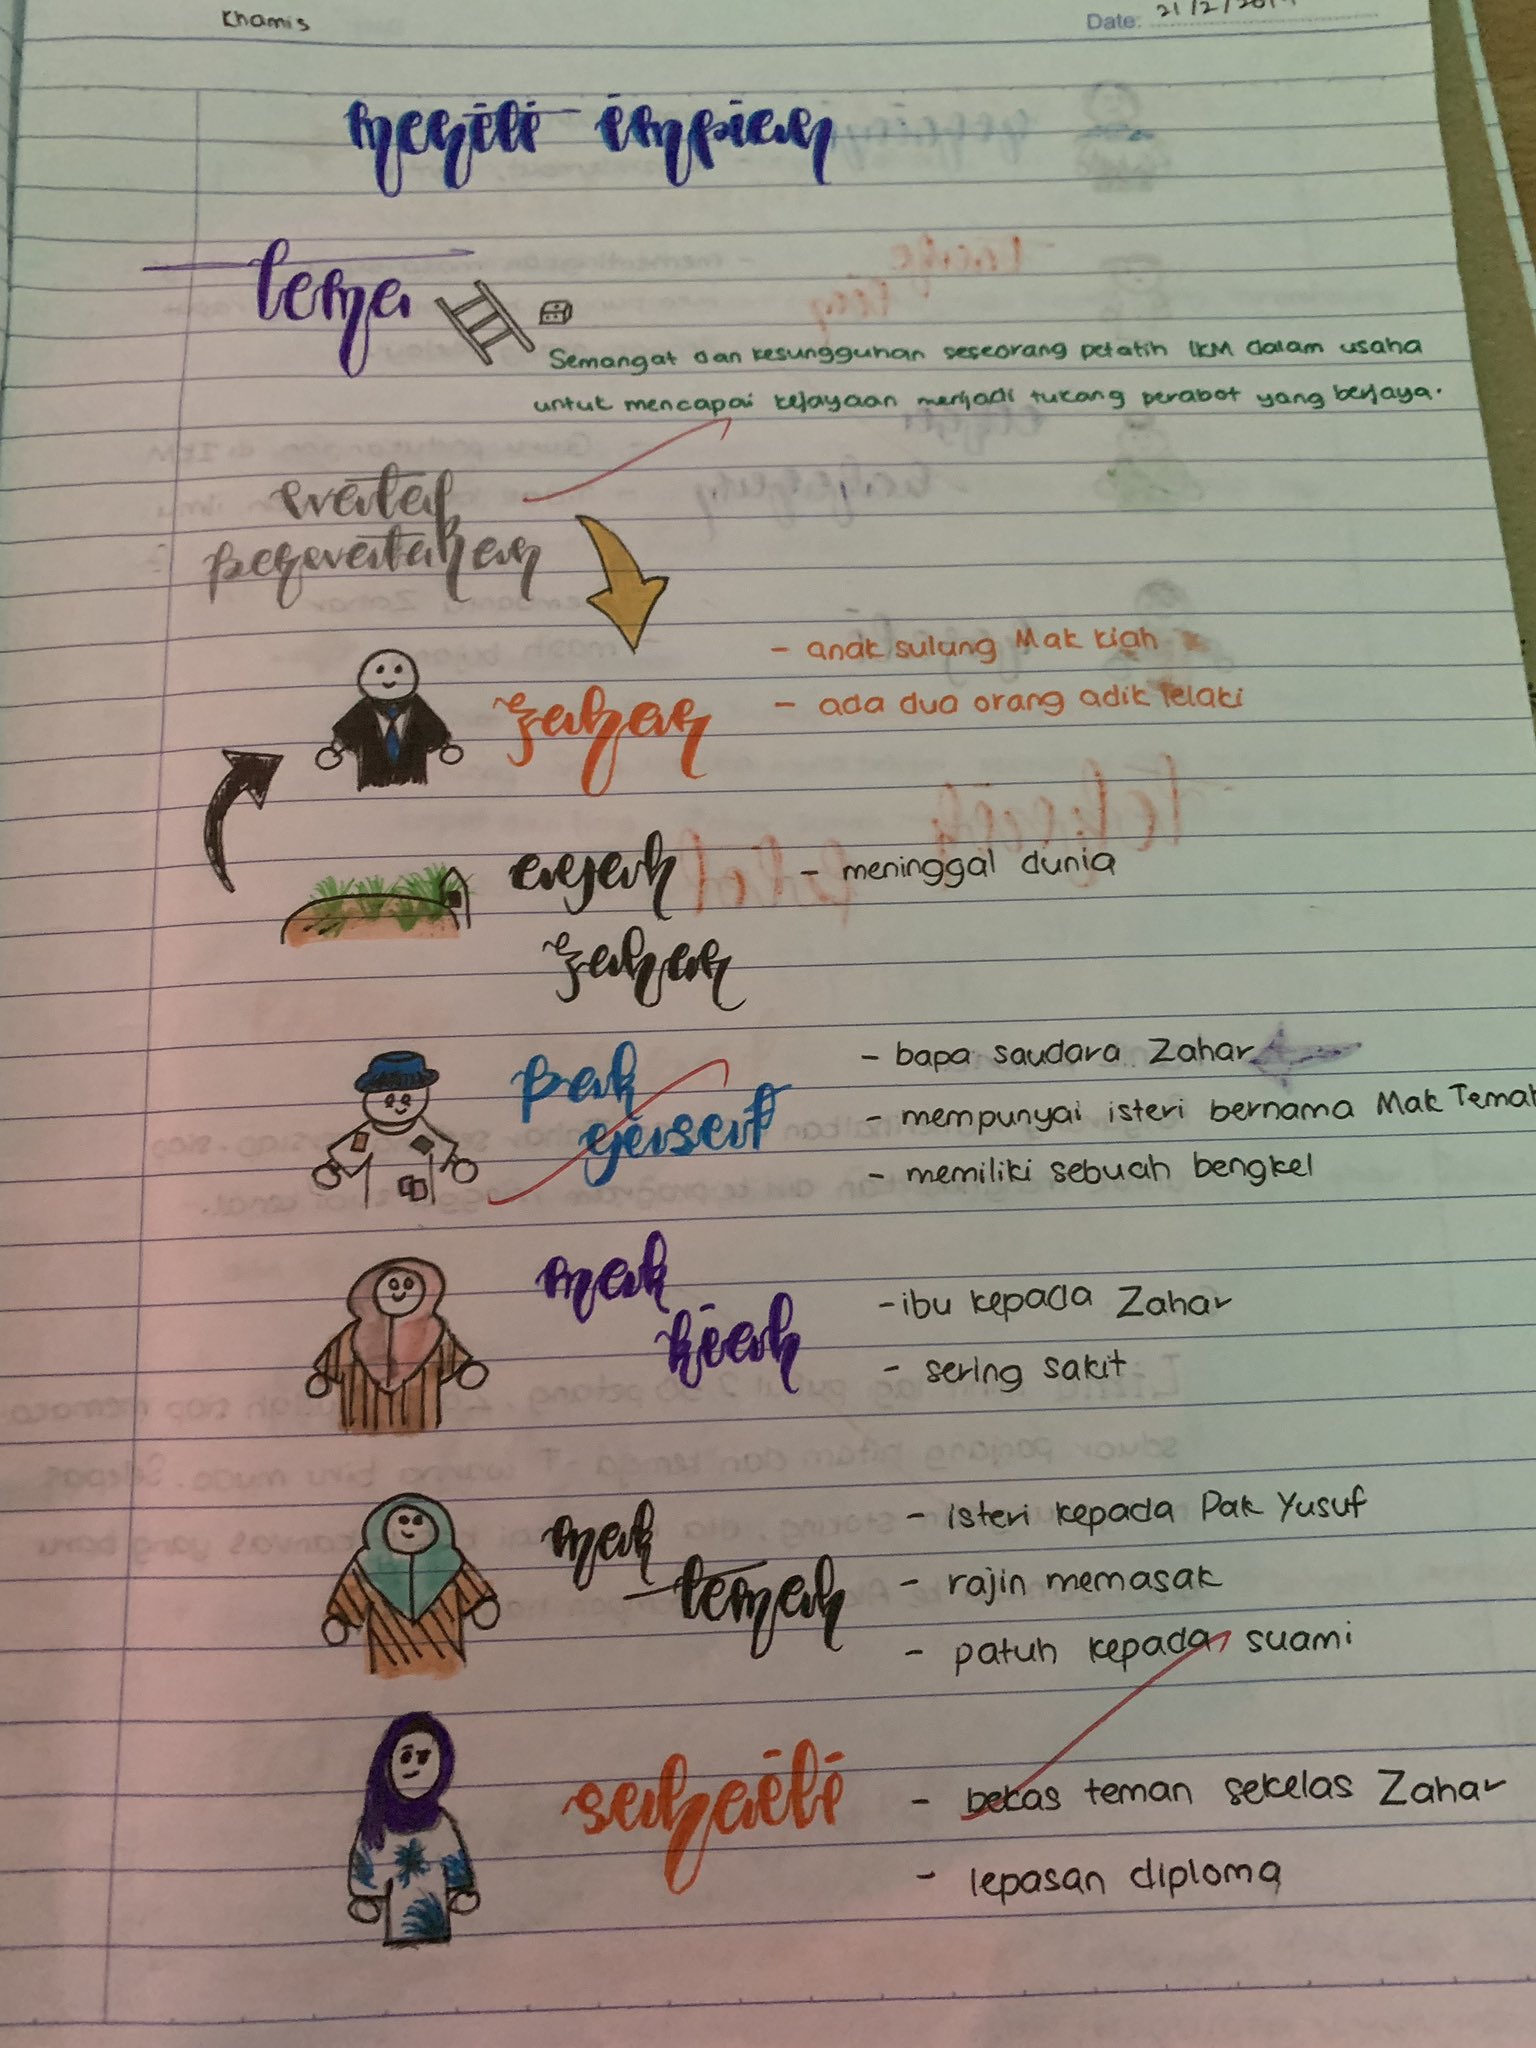 Khamis
Date: 21/2/2019
meniti impian
tema
Semangat dan kesungguhan seseorang pelatih IKM dalam usaha
untuk mencapai kejayaan menjadi tukang perabot yang berjaya.
watak
perwatakan
zahar
- anak sulung Mak Kiah
- ada dua orang adik lelaki
ayah
zahar
- meninggal dunia
pak
yusuf
- bapa saudara Zahar
- mempunyai isteri bernama Mak Temah
- memiliki sebuah bengkel
mak
kiah
- ibu kepada Zahar
- sering sakit
mak
temah
- isteri kepada Pak Yusuf
- rajin memasak
- patuh kepada suami
suhaili
- bekas teman sekelas Zahar
- lepasan diploma